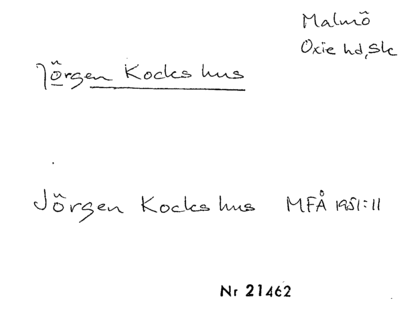 Malmö
Oxie hd, Sk
Jörgen Kocks hus
Jörgen Kocks hus MFÅ 1951:11
Nr 21462